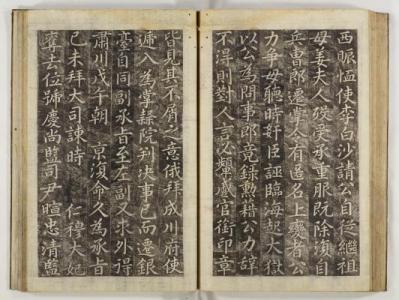 西賑恤使李白沙請公自從繼祖
母姜夫人歿受承重服旣除復自
兵曹郎遷掌令有造名上變者公
力爭毋聽時奸臣誣臨海起大獄
以公為問事郎竟錄勳籍公力辭
不得則對人言必顰蹙官銜印章
皆見其不屑之意俄拜成川府使
遞入為掌隷院判決事已而遷銀
臺自同副承旨至左副又求外得
肅川戊午朝 京復命久為承旨
己未拜大司諫時 仁穆大妃
奪去位號慶尚監司尹暄忠清監